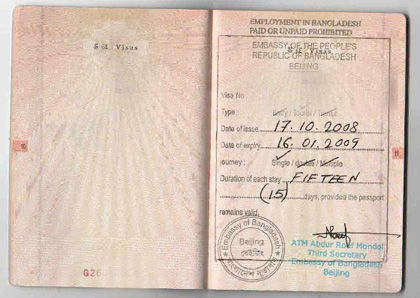 Visas
EMPLOYMENT IN BANGLADESH
PAID OR UNPAID PROHIBITED
EMBASSY OF THE PEOPLE'S
REPUBLIC OF BANGLADESH
BEIJING
Visas
Visa No
Type :
Date of issue 17.10.2008
Date of expiry 16.01.2009
Journey : Single / double / Multiple
Duration of each stay FIFTEEN
(15) days, provided the passport
remains valid.
Embassy of Bangladesh
Beijing
ATM Abdur Rouf Mondol
Third Secretary
Embassy of Bangladesh
Beijing
G26